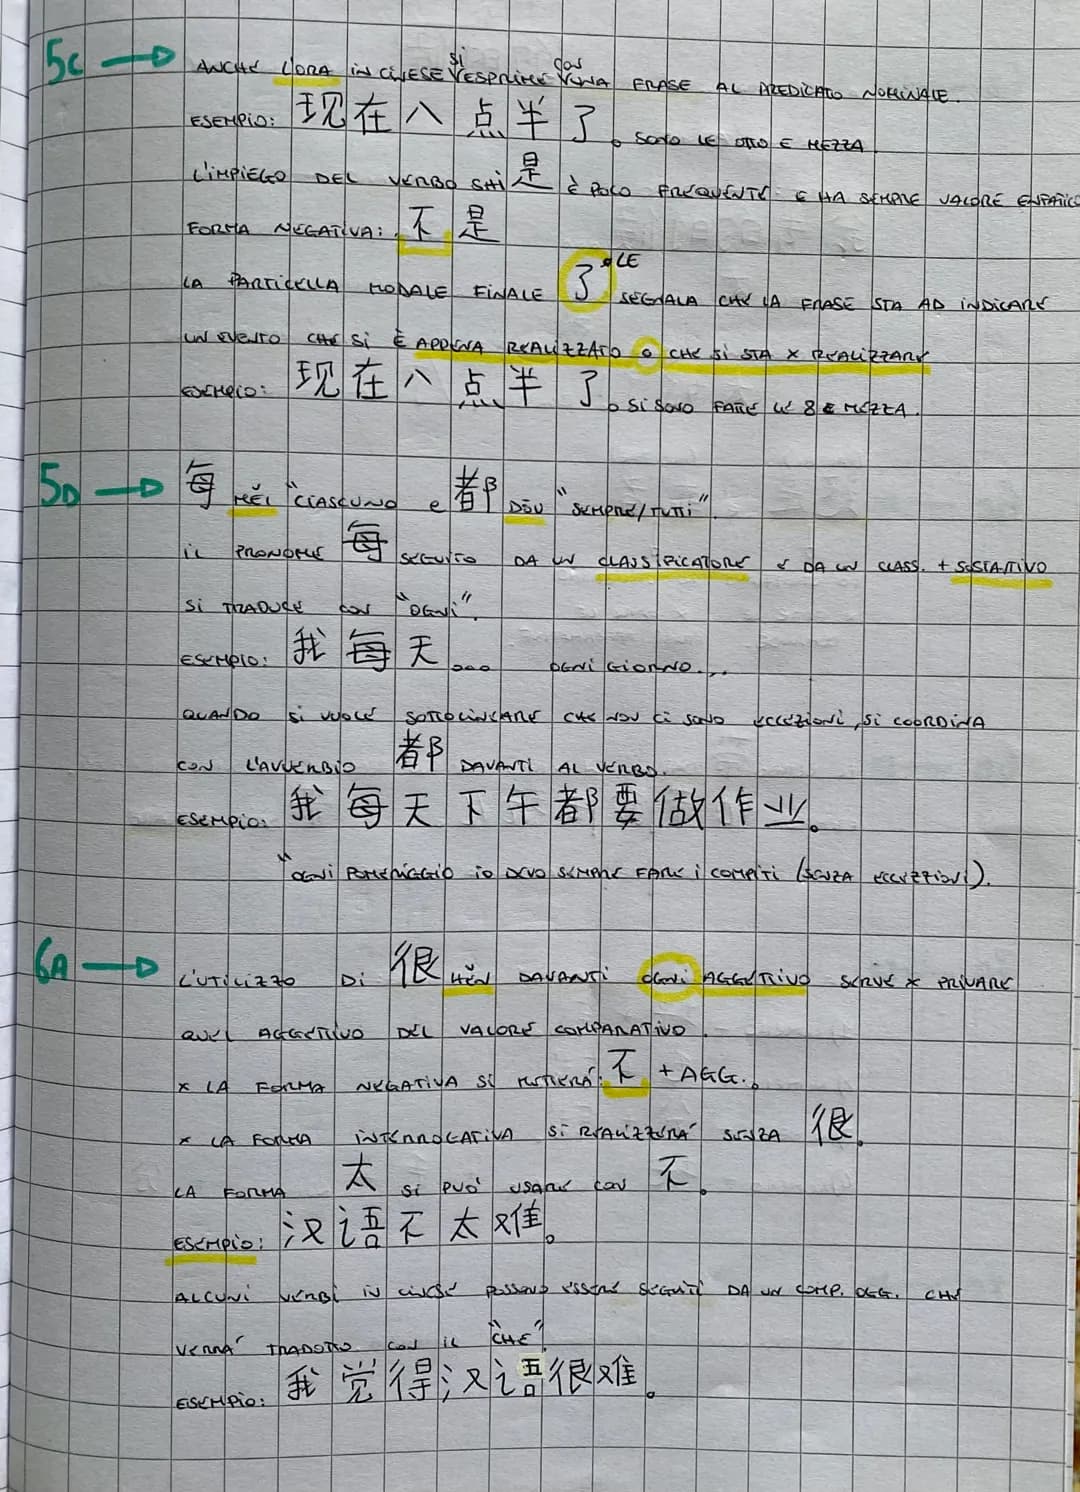 5C → ANCHE L'ORA IN CINESE SI ESPRIME CON UNA FRASE AL PREDICATO NOMINALE.
ESEMPIO: 现在八点半了。SONO LE OTTO E MEZZA
L'IMPIEGO DEL VERBO SHI 是 È POCO FREQUENTE E HA SEMPRE VALORE ENFATICO
FORMA NEGATIVA: 不是
LA PARTICELLA MODALE FINALE 了 LE SEGNALA CHE LA FRASE STA AD INDICARE
UN EVENTO CHE SI È APPENA REALIZZATO O CHE SI STA X REALIZZARE
ESEMPIO: 现在八点半了。SI SONO FATTE LE 8 E MEZZA.
5D → 每 MĚI "CIASCUNO E 都 DŌU "SEMPRE/TUTTI".
IL PRONOME 每 SEGUITO DA UN CLASSIFICATORE E DA UN CLASS. + SOSTANTIVO
SI TRADUCE CON "OGNI".
ESEMPIO: 我每天... OGNI GIORNO...
QUANDO SI VUOLE SOTTOLINEARE CHE NON CI SONO ECCEZIONI, SI COORDINA
CON L'AVVERBIO 都 DAVANTI AL VERBO.
ESEMPIO: 我每天下午都要做作业。
"OGNI POMERIGGIO IO DEVO SEMPRE FARE I COMPITI (SENZA ECCEZZIONI).
6A → L'UTILIZZO DI 很 HĚN DAVANTI OGNI AGGETTIVO SERVE X PRIVARE
QUEL AGGETTIVO DEL VALORE COMPARATIVO.
X LA FORMA NEGATIVA SI METTERÀ: 不 + AGG.
X LA FORMA INTERROGATIVA SI REALIZZERÀ SENZA 很.
LA FORMA 太 SI PUÒ USARE CON 不.
ESEMPIO: 汉语不太难。
ALCUNI VERBI IN CINESE POSSONO ESSERE SEGUITI DA UN COMP. OGG. CHE
VERRÀ TRADOTTO CON IL "CHE"
ESEMPIO: 我觉得汉语很难。